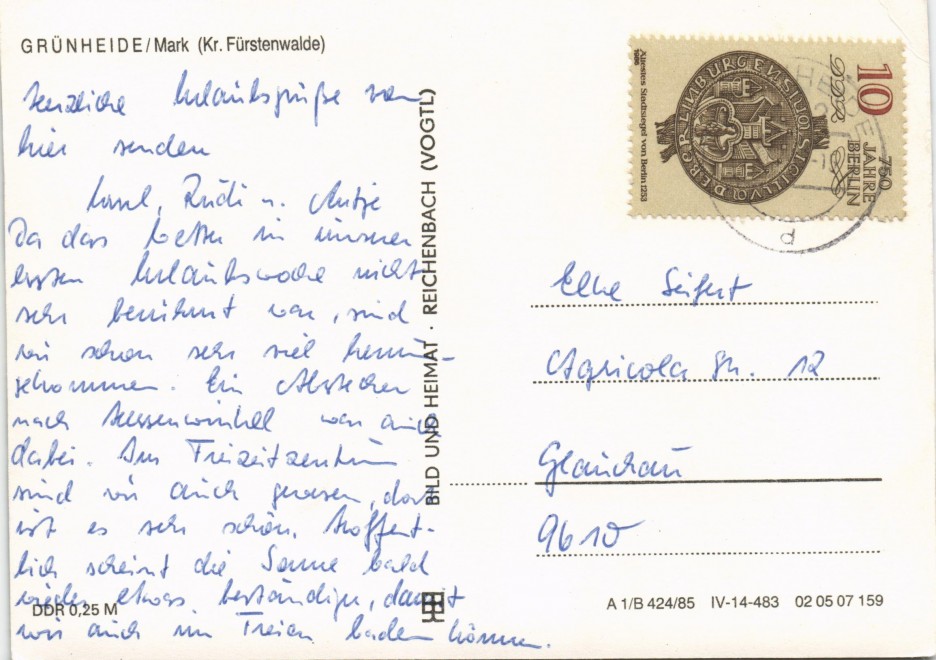 GRÜNHEIDE/Mark (Kr. Fürstenwalde)
Herzliche Urlaubsgrüße von
hier senden
Rudi u. Antje
Da das Wetter in unserer
ersten Urlaubswoche nicht
sehr berühmt war, sind
wir schon sehr viel herum-
gekommen. Ein Abstecher
nach Hessenwinkel war auch
dabei. Im Freizeitzentrum
sind wir auch gewesen, dort
ist es sehr schön. Hoffent-
lich scheint die Sonne bald
wieder etwas beständiger, damit
wir auch im Freien baden können.
DDR 0,25 M
BILD UND HEIMAT · REICHENBACH (VOGTL)
10
DDR
750
JAHRE
BERLIN
Ältestes Stadtsiegel von Berlin 1253
1986
Elke Seifert
Agricola Str. 12
Glauchau
9610
A 1/B 424/85 IV-14-483 02 05 07 159